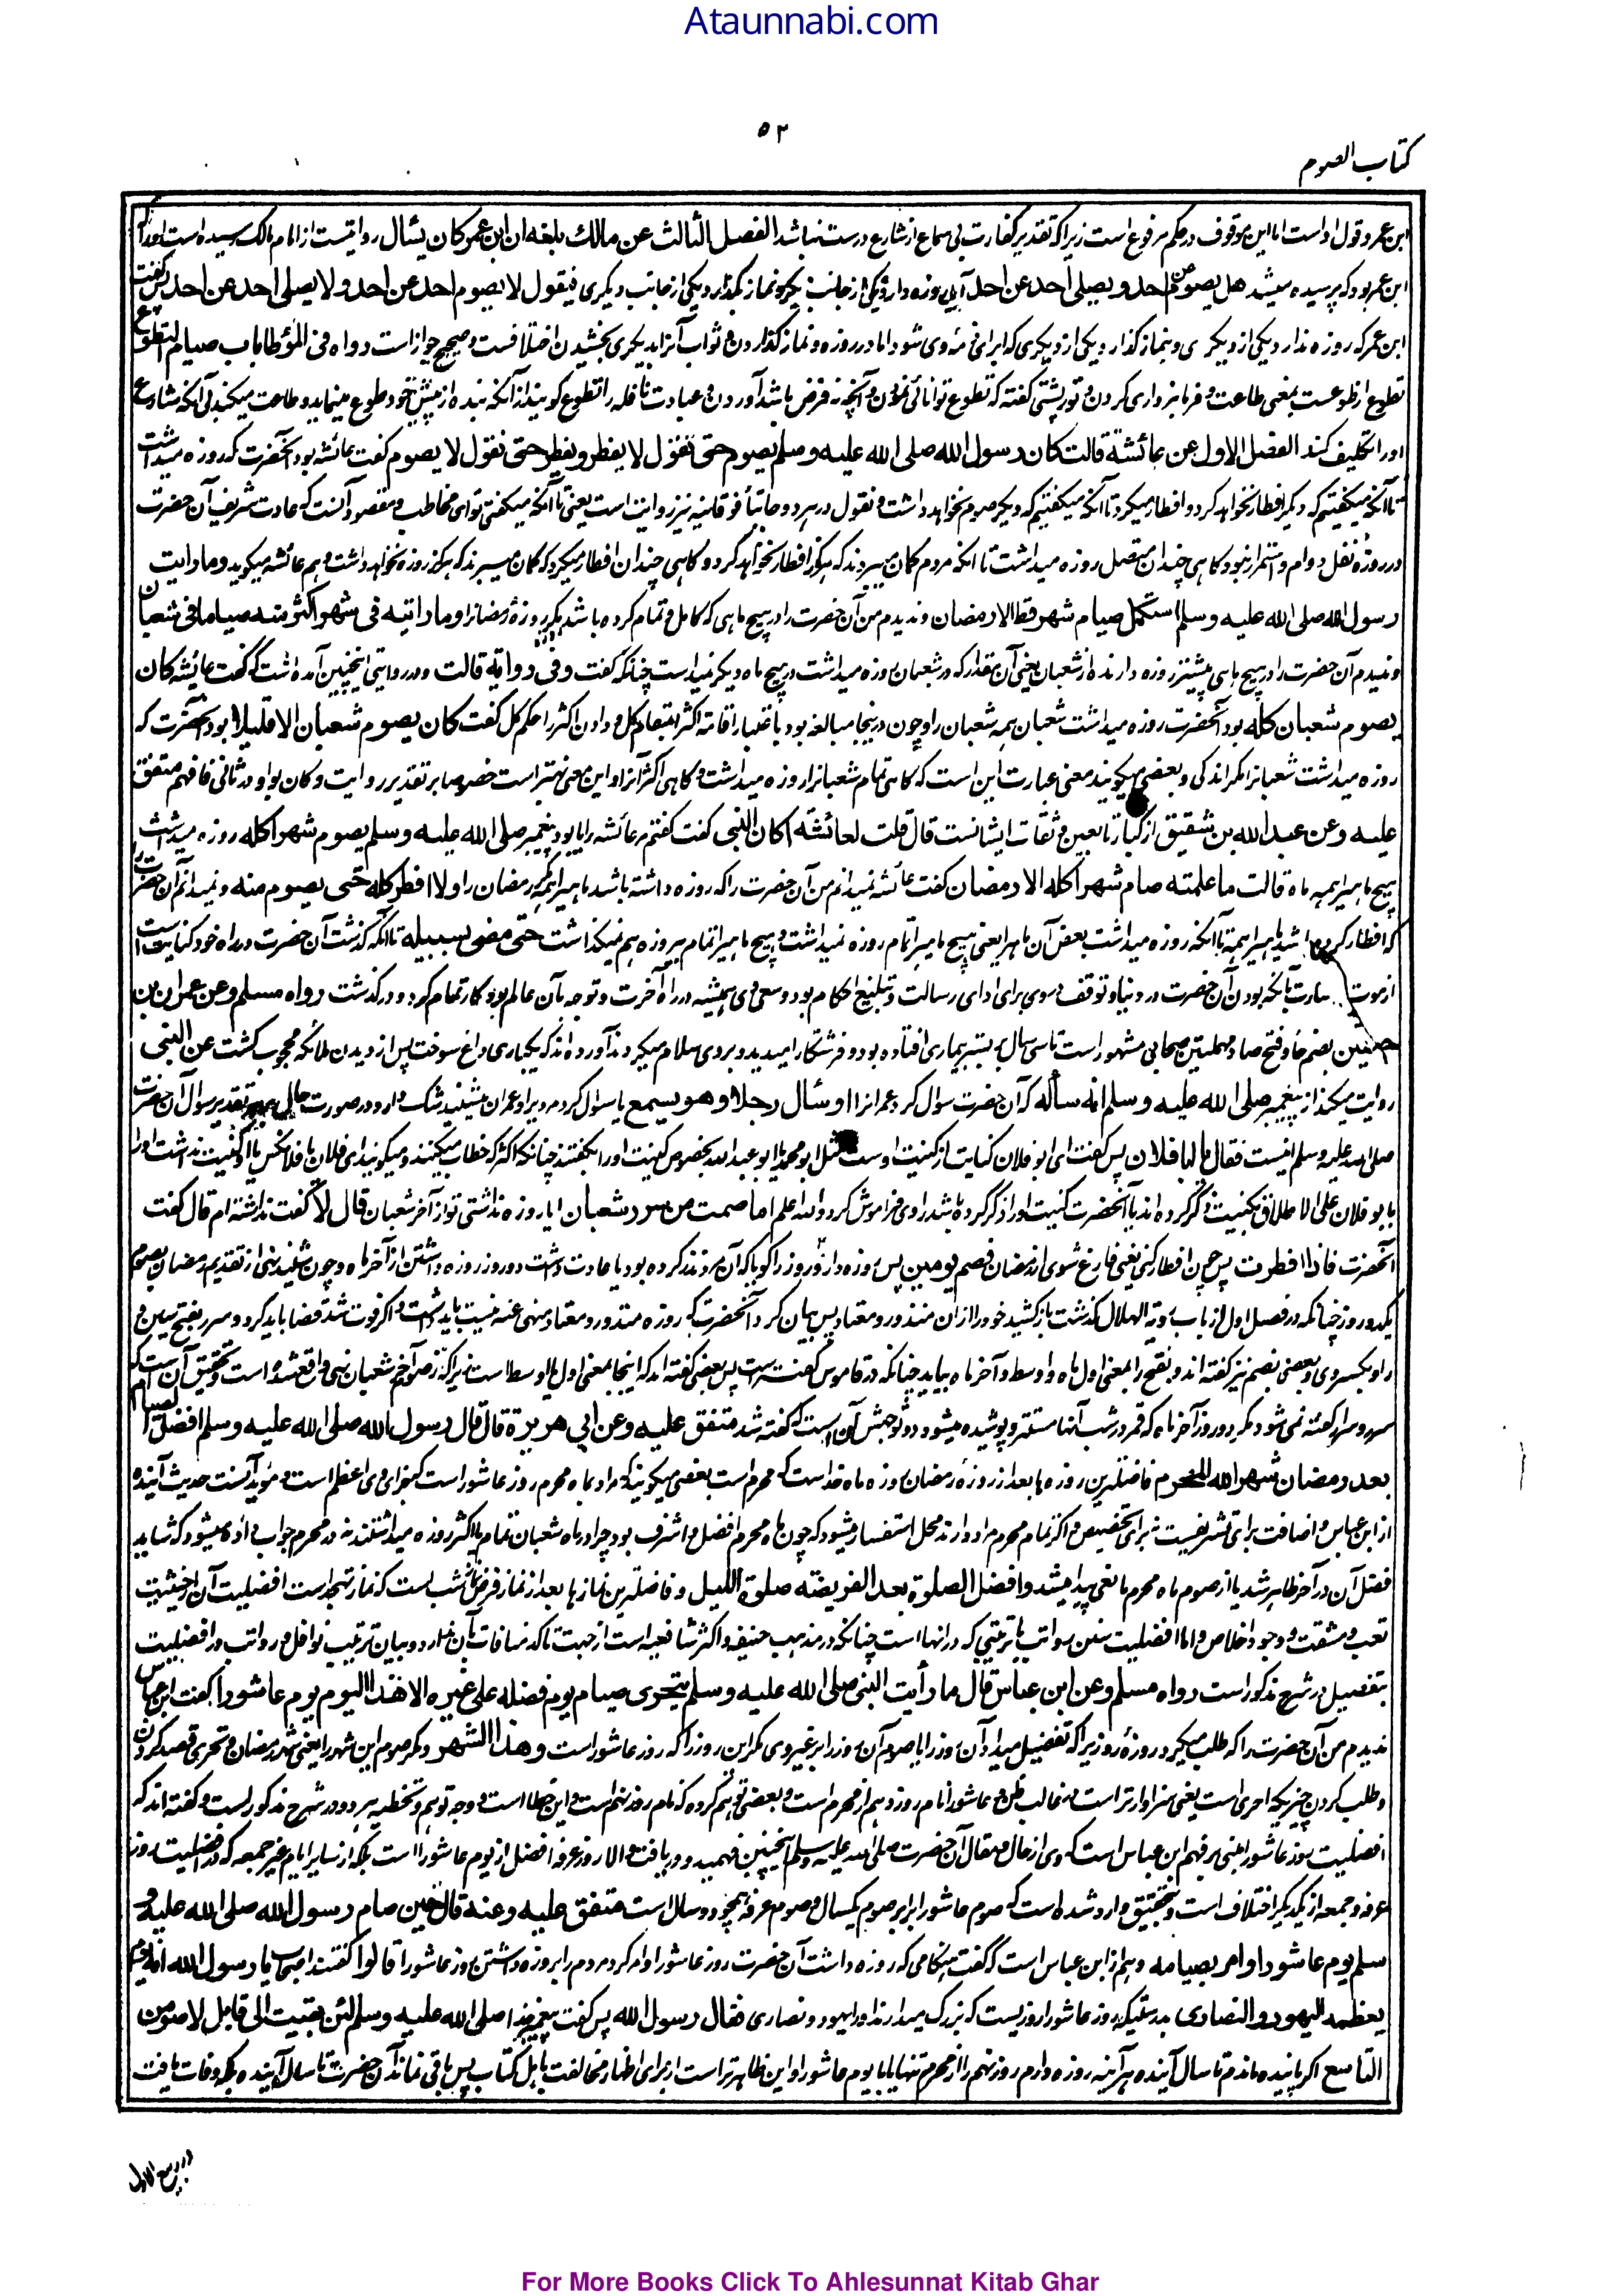 Ataunnabi.com
۵۲
کتاب الصوم
ابن عمر و قول او است اما این موقوف در حکم مرفوع است زیرا که تقدیر کفارت بی سماع از شارع درست نباشد الفصل الثالث عن مالك بلغه ان ابن عمر كان يسأل روایتست از امام مالک رسیده است او را که
ابن عمر بود که پرسیده میشد هل يصوم احد عن احد و يصلى احد عن احد آیا روزه دارد یکی از جانب دیگری و نماز گذارد یکی از جانب دیگری فيقول لا يصوم احد عن احد ولا يصلى احد عن احد پس گفت
ابن عمر که روزه ندارد یکی از دیگری و نماز نگذارد یکی از دیگری که ابرای ذمه وی شود اما در روزه و نماز گذاردن و ثواب آنرا بدیگری بخشیدن اختلافست و صحیح جواز است رواه فى المؤطا باب صيام التطوع
تطوع از طوعست بمعنی طاعت و فرمانبرداری کردن و تورپشتی گفته که تطوع توانائی نمودن و آنچه نه فرض باشد آوردن و عبادت نافله را تطوع گویند از آنکه بنده از پیش خود طوع مینماید و طاعت میکند بی آنکه شارع
او را تکلیف کند الفصل الاول عن عائشة قالت كان رسول الله صلى الله عليه وسلم يصوم حتى نقول لا يفطر و يفطر حتى نقول لا يصوم گفت عائشه بود آنحضرت که روزه میداشت
تا آنکه میگفتیم که دیگر افطار نخواهد کرد و افطار میکرد تا آنکه میگفتیم که دیگر صوم نخواهد داشت و نقول در هر دو جا بتای فوقانیه نیز روایت است یعنی تا آنکه میگفتی تو ای مخاطب و مقصود آنست که عادت شریف آن حضرت
در روزه نفل دوام و استمرار نبود گاهی چندان متصل روزه میداشت تا آنکه مردم گمان میبردند که هرگز افطار نخواهد کرد و گاهی چندان افطار میکرد که گمان میبرند که هرگز روزه نخواهد داشت و هم عائشه میگوید وما رايت
رسول الله صلى الله عليه وسلم استكمل صيام شهر قط الا رمضان و ندیدم من آن حضرت را در هیچ ماهی که کامل و تمام کرده باشد مگر روزه رمضانرا وما رايته فى شهر اكثر منه صياما فى شعبان
و ندیدم آن حضرت را در هیچ ماهی بیشتر روزه دارنده از شعبان یعنی آن مقدار که در شعبان روزه میداشت در هیچ ماه دیگر نمیداشت چنانکه گفت وفى رواية قالت و در روایتی اینچنین آمده است که گفت عایشه كان
يصوم شعبان كله بود آنحضرت روزه میداشت شعبان همه شعبان را و چون در اینجا مبالغه بود باعتبار اقامت اکثر بمقام کل و دادن اکثر را حکم کل گفت كان يصوم شعبان الا قليلا بود آنحضرت که
روزه میداشت شعبانرا مگر اندکی و بعضی میگویند معنی عبارت این است که گاهی تمام شعبانرا روزه میداشت و گاهی اکثر آنرا و این معنی بهتر است خصوصا بر تقدیر روایت و کان بواو در ثانی فافهم متفق
عليه وعن عبد الله بن شقيق از کبار تابعین و ثقات ایشانست قال قلت لعائشة اكان النبى گفت گفتم مر عائشه را آیا بود پیغمبر صلى الله عليه وسلم يصوم شهرا كله روزه میداشت
هیچ ماهیرا همه ماه قالت ما علمته صام شهرا كله الا رمضان گفت عائشه نمیدانم من آن حضرت را که روزه داشته باشد ماهیرا مگر رمضان را ولا افطر كله حتى يصوم منه و نمیدانم آن حضرت را
که افطار کرده باشد ماهیرا همه تا آنکه روزه میداشت بعض آن ماه را یعنی هیچ ماهیرا تمام روزه نمیداشت و هیچ ماهیرا تمام بیروزه هم نمیگذاشت حتى مضى لسبيله تا آنکه گذشت آن حضرت در راه خود کنایت است
از موت عبارت بآنکه بودن آن حضرت در دنیا و توقف وی برای ادای رسالت و تبلیغ احکام بود و سعی وی همیشه در راه آخرت و توجه بآن عالم بود کار تمام کرد و درگذشت رواه مسلم وعن عمران بن
حصين بضم حا و فتح صاد مهملتین صحابی مشهور است تا سی سال بر بستر بیماری افتاده بود و فرشتگانرا میدید و بر وی سلام میکردند آورده اند که یکباری داغ سوخت پس از دیدن ملائکه محجوب گشت عن النبى
روایت میکند از پیغمبر صلى الله عليه وسلم انه سأله که آن حضرت سوال کرد عمرانرا او سأل رجلا وهو يسمع یا سوال کرد مردیرا و عمران میشنید شک دارد در صورت حال بهر تقدیر سوال آن حضرت
صلی الله علیه وسلم اینست فقال يا ابا فلان پس گفت ای ابو فلان کنایت از کنیت اوست مثل ابو محمد یا ابو عبد الله بخصوص کنیت او را نگفتند چنانکه اکثر که خطاب میکنند و میگویند ای فلان یا فلانکس یا او کنیت نداشت او را
با بو فلان علی الاطلاق بکنیت ذکر کرده اند یا آنحضرت کنیت او را ذکر کرده باشد راوی فراموش کرد والله اعلم اما صمت من سرر شعبان آیا روزه نداشتی تو از آخر شعبان قال لا گفت نداشته ام قال گفت
آنحضرت فاذا افطرت پس چون افطار کنی یعنی فارغ شوی از رمضان فصم يومين پس روزه دار دو روز را گویا که آن مرد نذر کرده بود یا عادت داشت دو روز روزه داشتن از آخر ماه و چون شنید نهی از تقدیم رمضان بصوم
یک و دو روز چنانکه در فصل اول از باب رویة الهلال گذشت باز کشید خود را از آن منذور و معتاد پس بیان کرد آنحضرت که روزه منذور و معتاد منهی عنه نیست باید داشت و اگر فوت شد قضا باید کرد و سرر بفتح سین و
را و بکسر وی و بعضی بضم نیز گفته اند و بفتح را بمعنی اول ماه و اوسط و آخر ماه بیاید چنانکه در قاموس گفته است پس بعضی گفته اند که اینجا بمعنی اول یا اوسط است زیرا که از صوم آخر شعبان نهی واقع شده است و تحقیق آن است که
سرر و سرار گفته نمی شود مگر دو روز آخر ماه که قمر در شب آنها مستتر و پوشیده میشود و توجیهش آن است که گفته شد متفق عليه وعن ابى هريرة قال قال رسول الله صلى الله عليه وسلم افضل الصيام
بعد رمضان شهر الله المحرم فاضلترین روزه ها بعد از روزه رمضان روزه ماه خداست که محرم است بعضی میگویند که مراد بماه محرم روز عاشورا است که جزای وی اعظم است و مؤید آنست حدیث آینده
از ابن عباس و اضافت برای تشریفست نه برای تخصیص و اگر تمام محرم مراد دارند محل استفسار میشود که چون ماه محرم افضل و اشرف بود چرا در ماه شعبان تمام یا اکثر روزه میداشتند نه در محرم جواب داده میشود که شاید
فضل آن در آخر ظاهر شد یا از صوم ماه محرم مانعی پیدا میشد وافضل الصلوة بعد الفريضة صلوة الليل و فاضلترین نمازها بعد از نماز فرض نماز شب است که نماز تهجد است افضلیت آن از حیثیت
تعب و مشقت و وجود اخلاص و اما افضلیت سنن رواتب با ترتیبی که در آنها است چنانکه در مذهب حنیفه و اکثر شافعیه است از جهت تاکد منافات بآن ندارد و بیان ترتیب نوافل و رواتب در افضلیت
بتفصیل در شرح مذکور است رواه مسلم وعن ابن عباس قال ما رأيت النبى صلى الله عليه وسلم يتحرى صيام يوم فضله على غيره الا هذا اليوم يوم عاشورا گفت ابن عباس
ندیدم من آن حضرت را که طلب میکرد روزه روزیرا که تفضیل میداد آن روز را یا صوم آن روز را بر غیر وی مگر این روز را که روز عاشورا است وهذا الشهر و مگر صوم این شهر را یعنی شهر رمضان و تحری قصد کردن
و طلب کردن چیزیکه احری است یعنی سزاوارتر است در غالب ظن و عاشورا نام روز دهم از محرم است و بعضی توهم کرده که نام روز نهم است و این خطا است و وجه توهم و تخطیه هر دو در شرح مذکور است و گفته اند که
افضلیت روز عاشورا مبنی بر فهم ابن عباس است که وی از حال و مقال آن حضرت صلی الله علیه وسلم اینچنین فهمید و دریافت و الا روز عرفه افضل از یوم عاشورا است بلکه از سایر ایام غیر جمعه که در فضیلت روز
عرفه و جمعه از یکدیگر اختلاف است و بتحقیق وارد شده است که صوم عاشورا برابر صوم یکسال و صوم عرفه همچو دو سال است متفق عليه وعنه قال حين صام رسول الله صلى الله عليه و
سلم يوم عاشورا وامر بصيامه و هم از ابن عباس است که گفت هنگامی که روزه داشت آن حضرت روز عاشورا و امر کرد مردم را بروزه داشتن روز عاشورا قالوا گفتند اصحاب يا رسول الله انه يوم
يعظمه اليهود والنصارى بدرستیکه روز عاشورا روزیست که بزرگ میدارند او را یهود و نصاری فقال رسول الله پس گفت پیغمبر خدا صلى الله عليه وسلم لئن بقيت الى قابل لاصومن
التاسع اگر پاینده ماندم تا سال آینده هر آینه روزه دارم روز نهم را از محرم تنها یا با یوم عاشورا و این ظاهرتر است از برای اظهار مخالفت با اهل کتاب پس باقی نماند آن حضرت تا سال آینده بلکه وفات یافت
در ربیع الاول
For More Books Click To Ahlesunnat Kitab Ghar